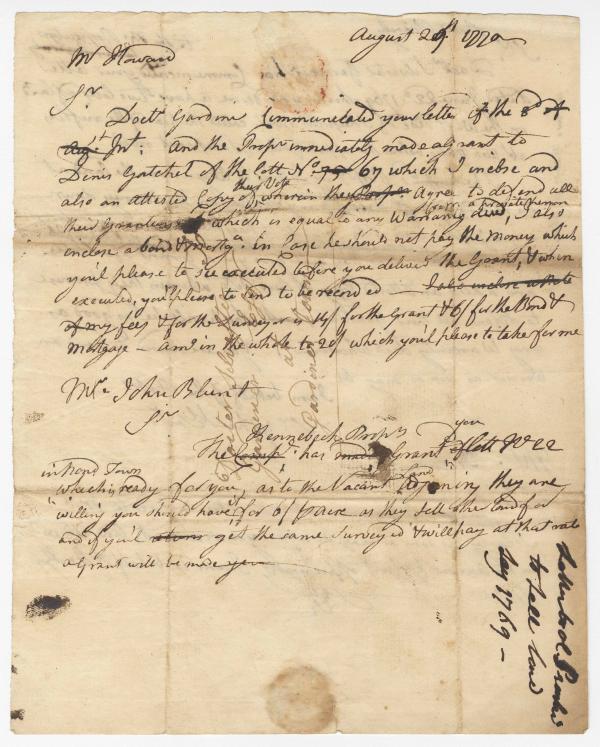 August 29th 1770
Mr Howard
Sr
Doctr Gardiner Communicated your letter of the 3d of
Augt Int: and the Propr immediately made a Grant to
Denis Gatchel of the Lott No. 67 which I inclose and
also an attested Copy of their Vote wherein they Agree to defend all
their Grantees which is equal to any Warranty deed, from a private Person I also
inclose a bond & mortga in Case he should not pay the Money which
you'l please to see executed before you deliver the Grant, & when
executed, you'l please to send to be recorded — I also inclose a Note
of my fees & for the Surveyor is 14/ for the Grant & 6/ for the Bond &
Mortgage — amt in the whole to 20/ which you'l please to take for me
Mr. John Blunt
Sr
The Kennebeck Proprs has Grant you Lott No 22
in Pond Town
which is ready for you, as to the Vacant Land joining they are
willing you should have it for 6/ p acre as they sell other land for
and if you'l get the same Survey'd & will pay at that rate
a Grant will be made
to sell Land
1769 —